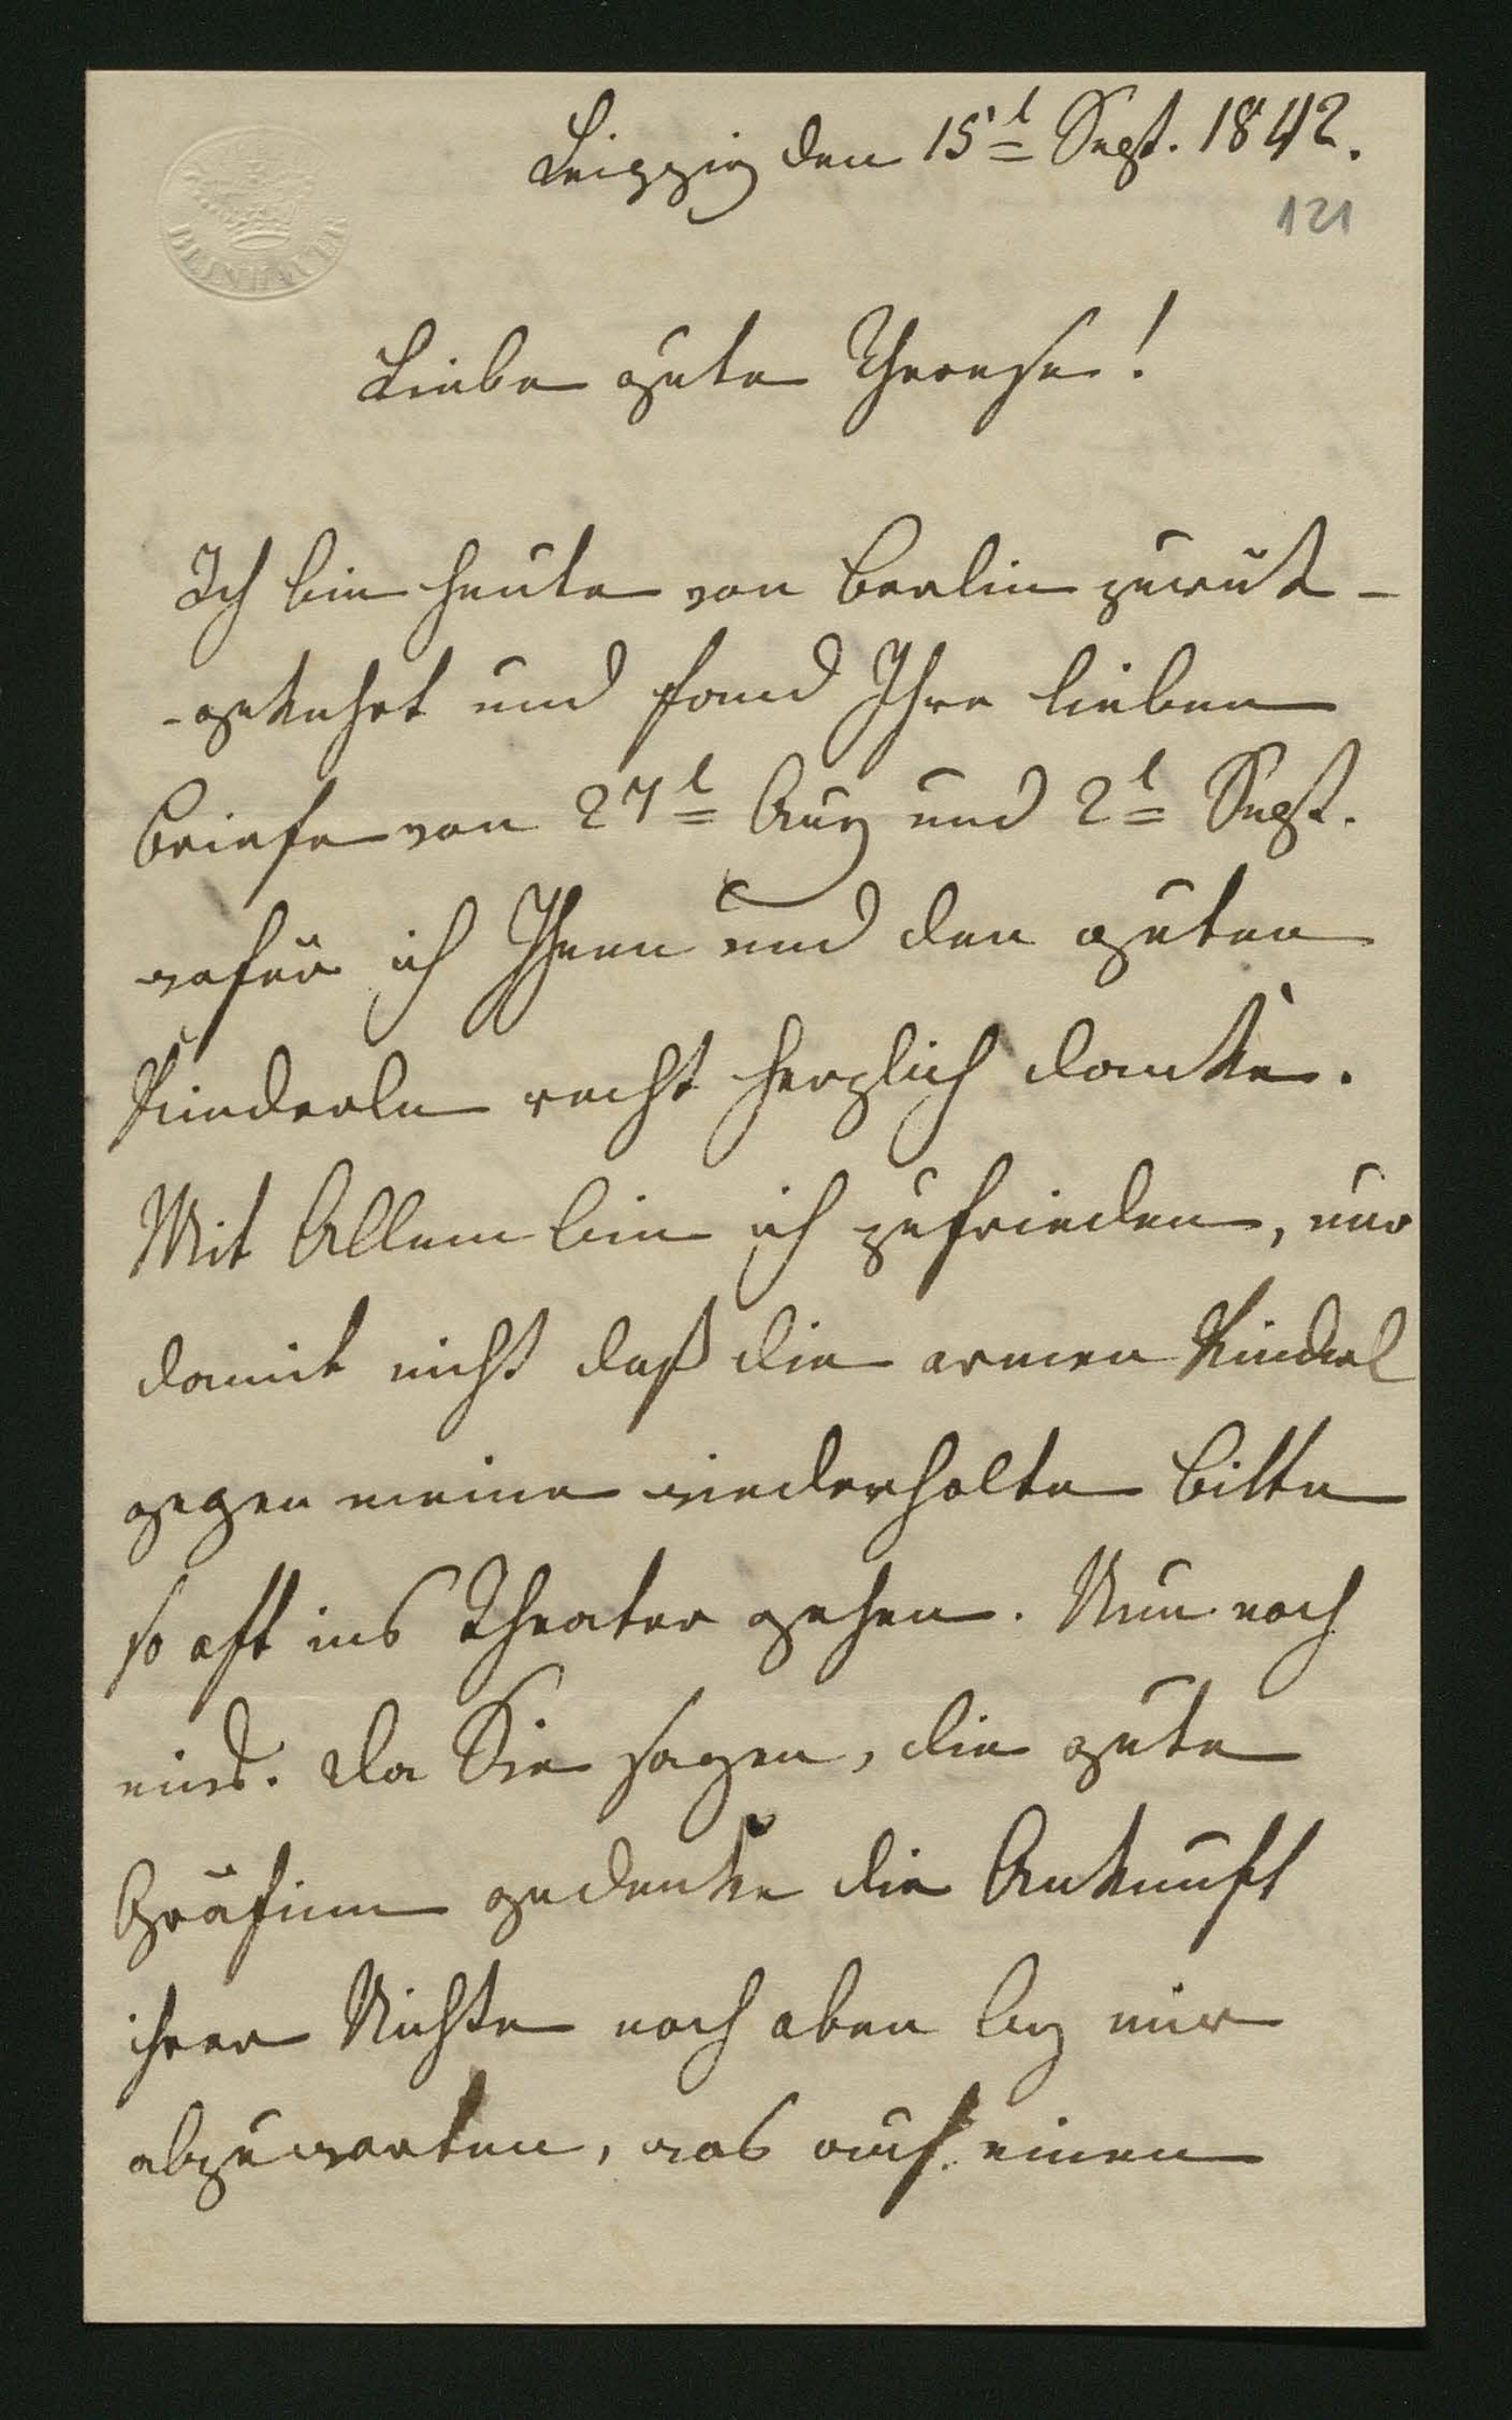 Leipzig den 15t Sept. 1842.
121
Liebe gute Therese!
Ich bin heute von Berlin zurük-
-gekehrt und fand Ihre lieben
Briefe von 27t Aug und 2t Sept.
wofür ich Ihnen und den guten
Kinderln recht herzlich danke.
Mit Allem bin ich zufrieden, nur
damit nicht daß die armen Kinderl
gegen meine wiederholte Bitte
so oft ins Theater gehen. Nun noch
eins. Da Sie sagen, die gute
Gräfinn gedenke die Ankunft
ihrer Nichte noch oben bey mir
abzuwarten, was auf einen